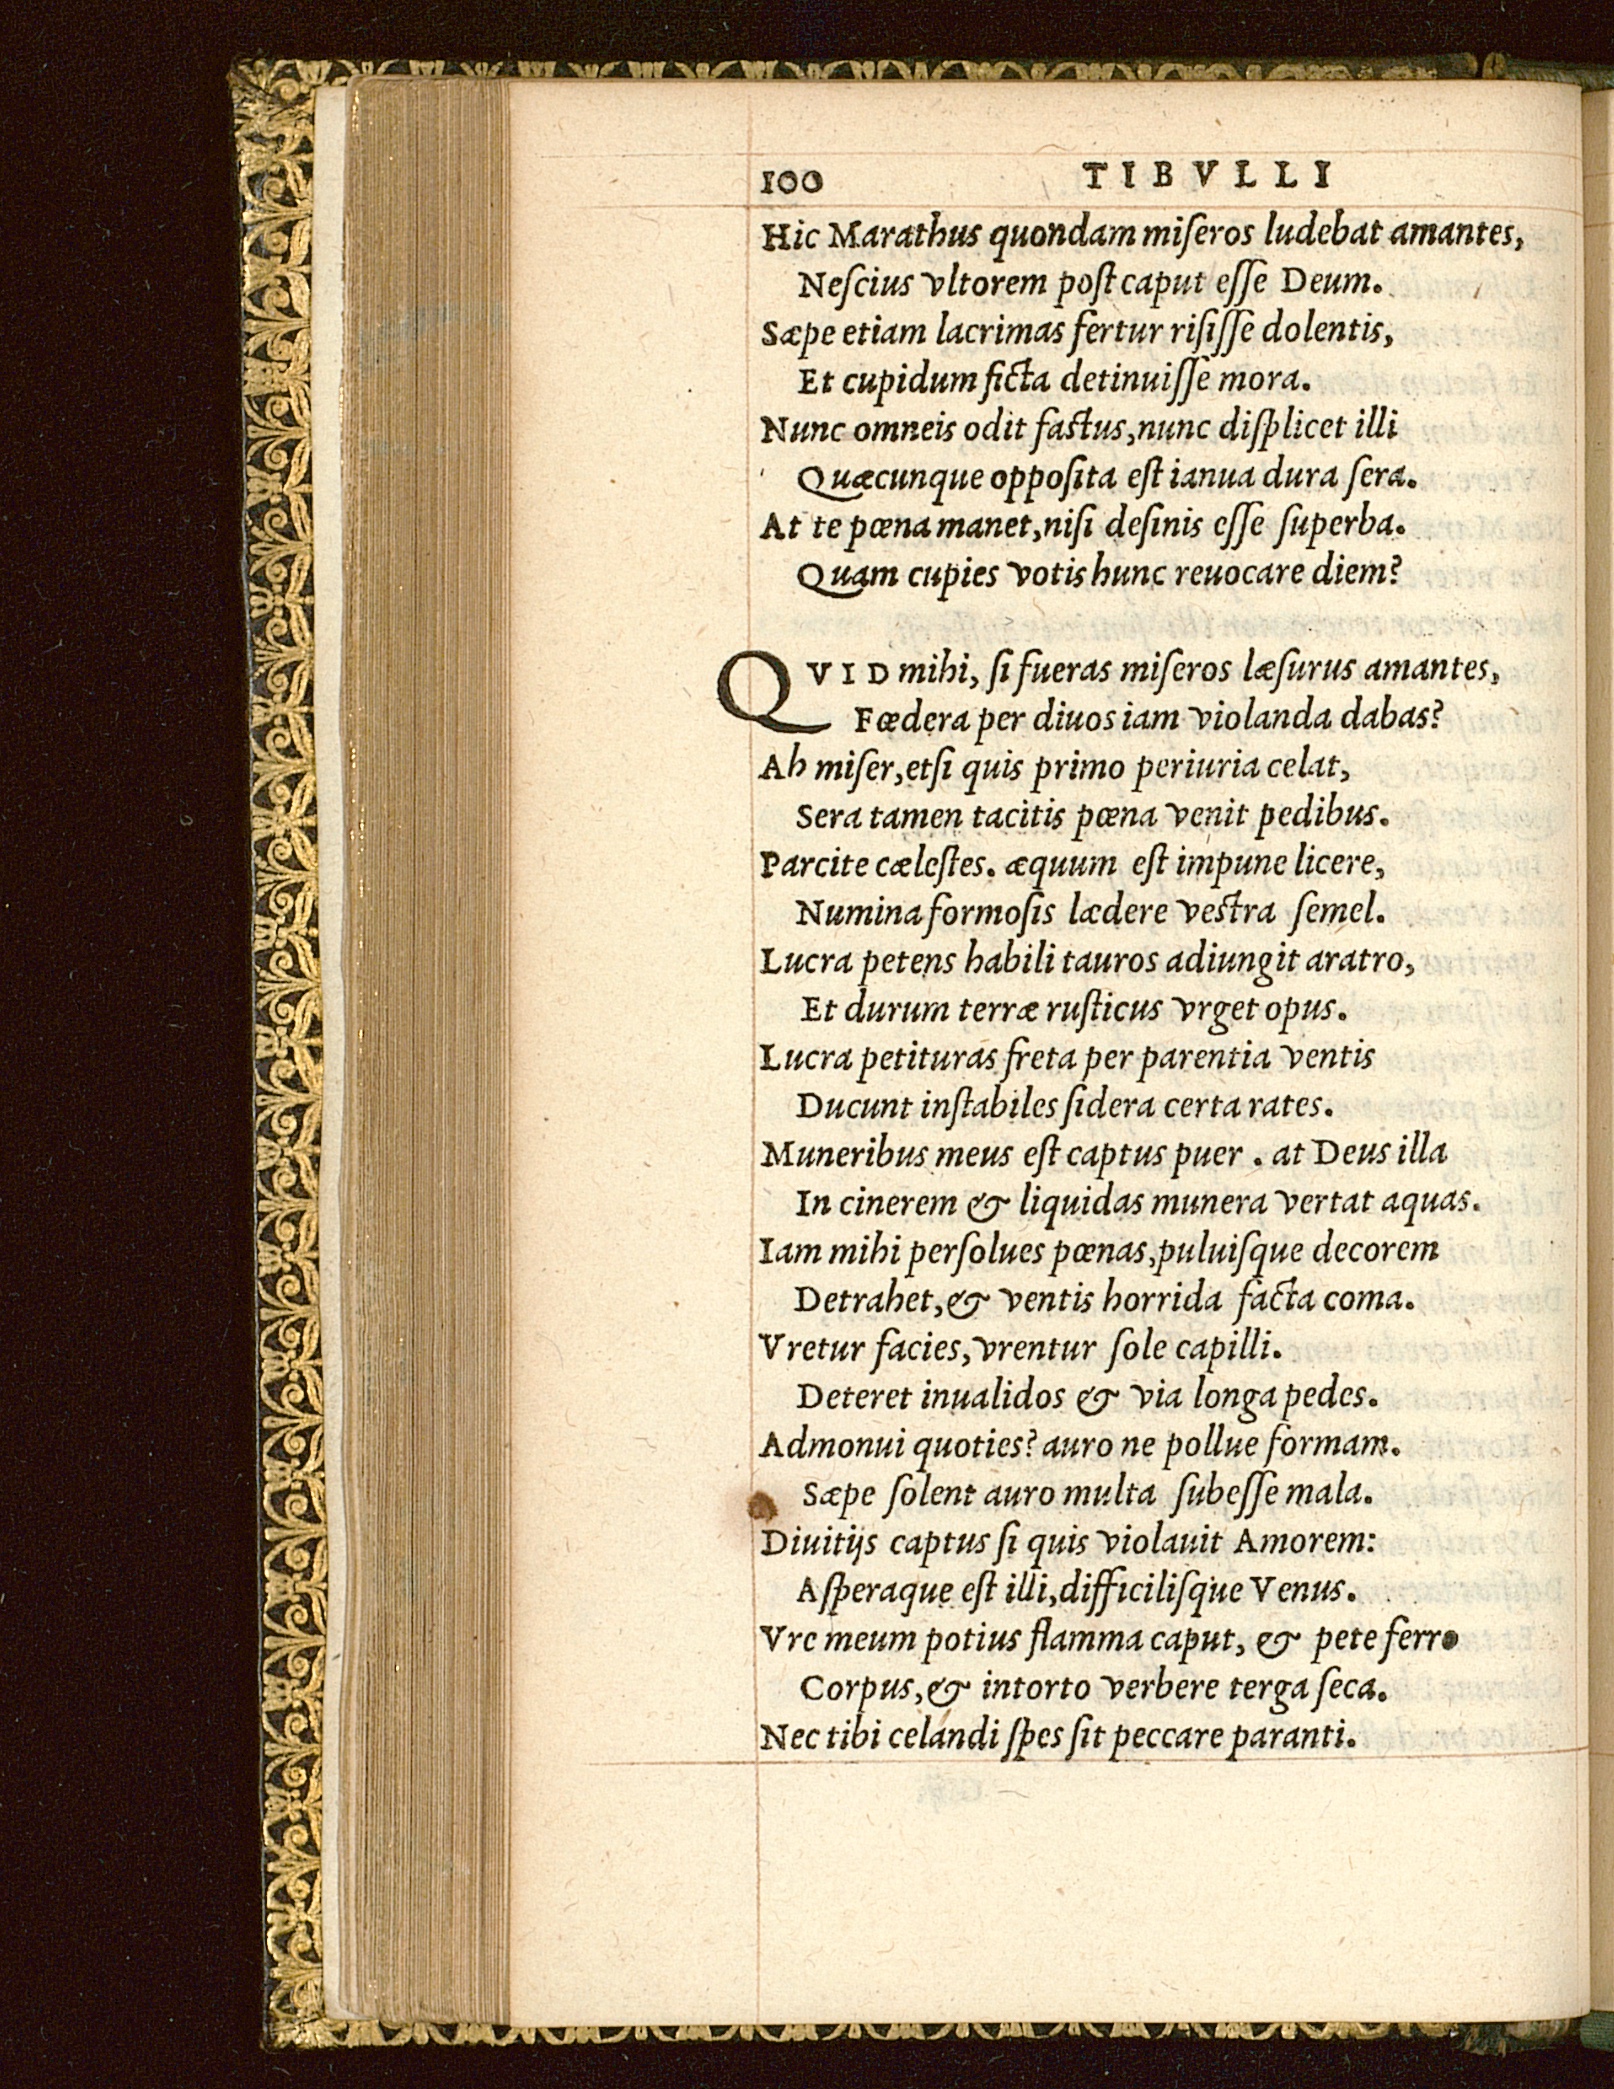 100 TIBVLLI
Hic Marathus quondam miſeros ludebat amantes,
Neſcius vltorem poſt caput eſſe Deum.
Sæpe etiam lacrimas fertur riſiſſe dolentis,
Et cupidum ficta detinuiſſe mora.
Nunc omneis odit faſtus, nunc diſplicet illi
Quæcunque oppoſita eſt ianua dura ſera.
At te pœna manet, niſi deſinis eſſe ſuperba.
Quam cupies votis hunc reuocare diem?
QVID mihi, ſi fueras miſeros læſurus amantes,
Fœdera per diuos iam violanda dabas?
Ah miſer, etſi quis primo periuria celat,
Sera tamen tacitis pœna venit pedibus.
Parcite cæleſtes. æquum eſt impune licere,
Numina formoſis lædere veſtra ſemel.
Lucra petens habili tauros adiungit aratro,
Et durum terræ ruſticus vrget opus.
Lucra petituras freta per parentia ventis
Ducunt inſtabiles ſidera certa rates.
Muneribus meus eſt captus puer. at Deus illa
In cinerem & liquidas munera vertat aquas.
Iam mihi perſolues pœnas, puluiſque decorem
Detrahet, & ventis horrida facta coma.
Vretur facies, vrentur ſole capilli.
Deteret inualidos & via longa pedes.
Admonui quoties? auro ne pollue formam.
Sæpe ſolent auro multa ſubeſſe mala.
Diuitijs captus ſi quis violauit Amorem:
Aſperaque eſt illi, difficiliſque Venus.
Vre meum potius flamma caput, & pete ferro
Corpus, & intorto verbere terga ſeca.
Nec tibi celandi ſpes ſit peccare paranti.